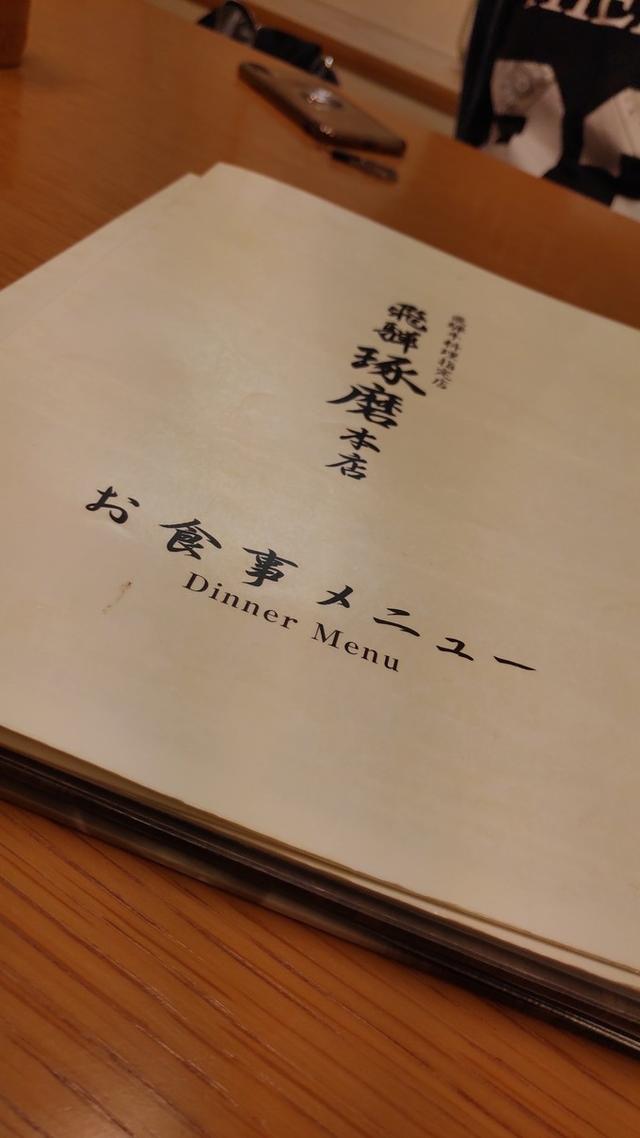 飛騨牛料理指定店
飛騨
琢磨
本店
お食事メニュー
Dinner Menu